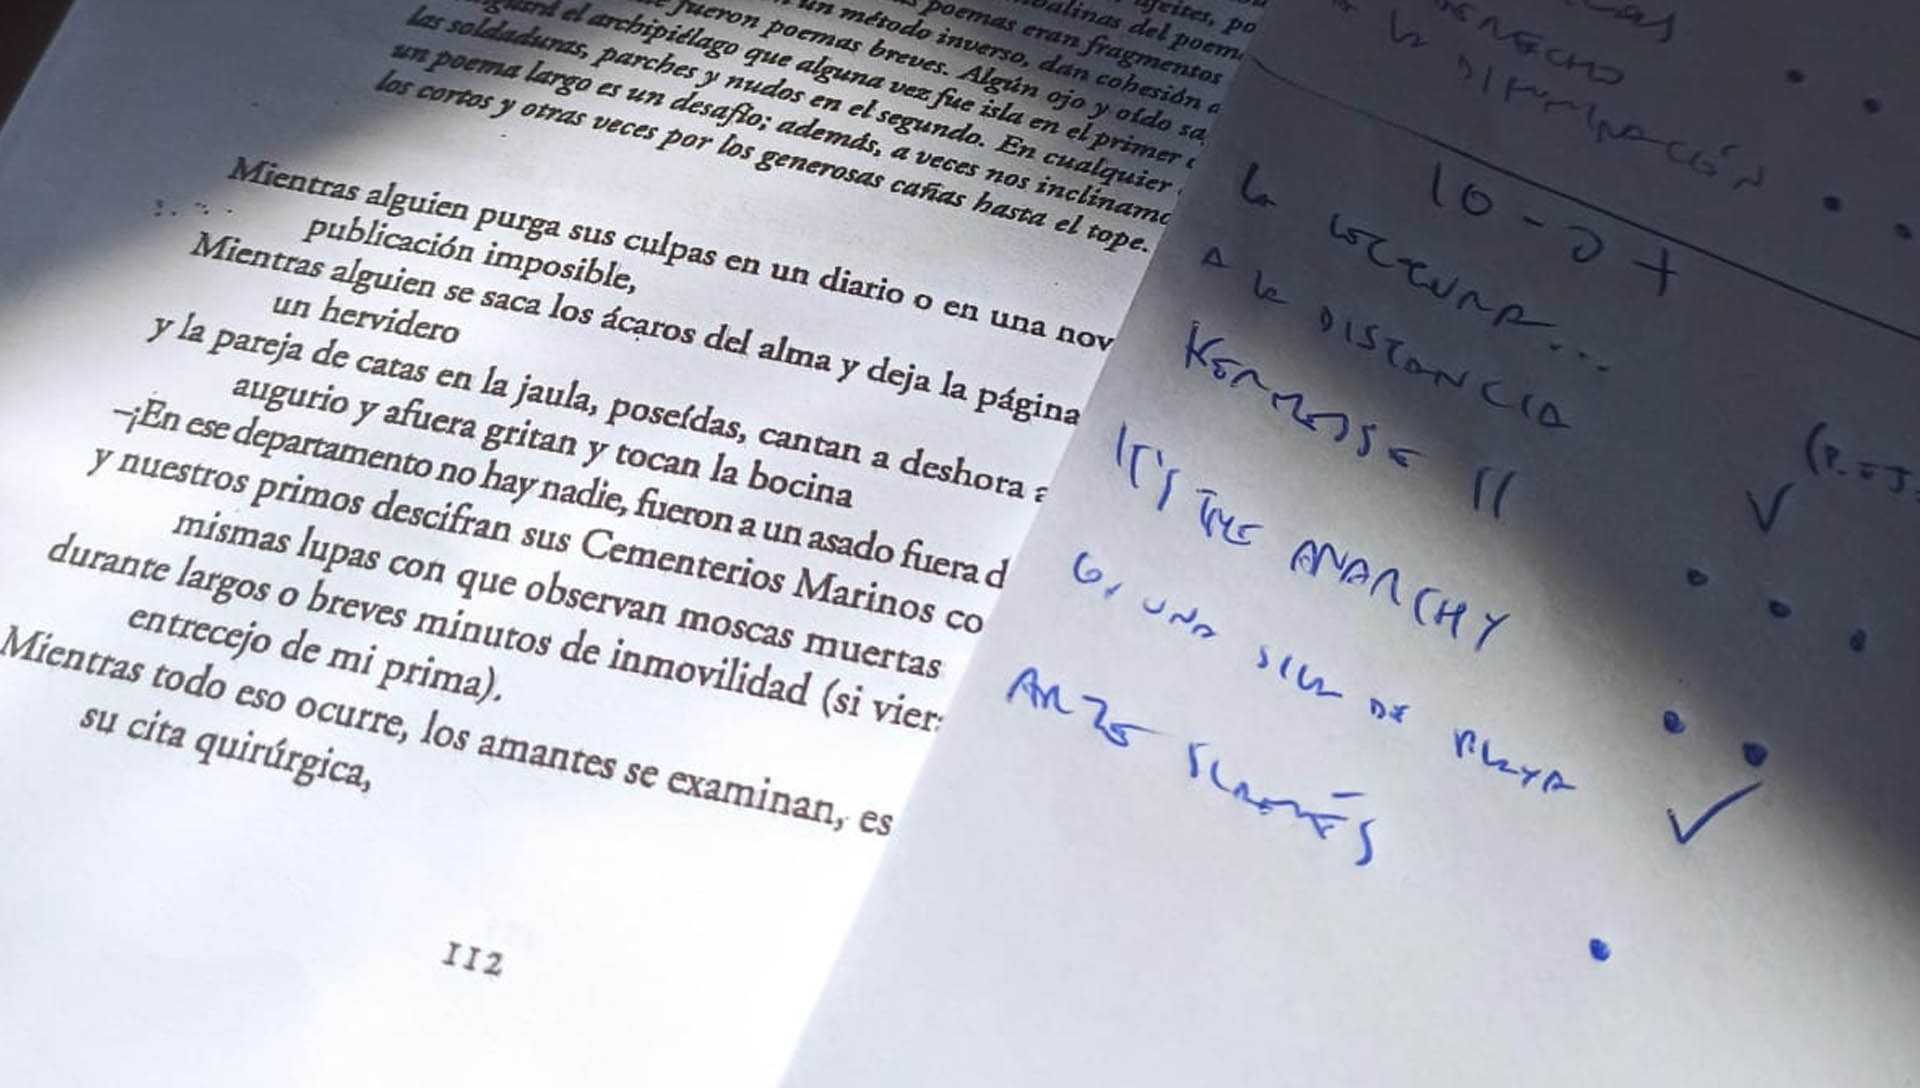 afeites, po
poemas eran fragmentos
balinas del poem
fueron poemas breves. Algún ojo y oído sa
un método inverso, dan cohesión a
el archipiélago que alguna vez fue isla en el primer
las soldaduras, parches y nudos en el segundo. En cualquier
un poema largo es un desafío; además, a veces nos inclinamo
los cortos y otras veces por los generosas cañas hasta el tope.
Mientras alguien purga sus culpas en un diario o en una nov
publicación imposible,
Mientras alguien se saca los ácaros del alma y deja la página
un hervidero
y la pareja de catas en la jaula, poseídas, cantan a deshora a
augurio y afuera gritan y tocan la bocina
–¡En ese departamento no hay nadie, fueron a un asado fuera d
y nuestros primos descifran sus Cementerios Marinos co
mismas lupas con que observan moscas muertas
durante largos o breves minutos de inmovilidad (si vier
entrecejo de mi prima).
Mientras todo eso ocurre, los amantes se examinan, es
su cita quirúrgica,
112
10-
A la DISTANCIA
IT'S THE ANARCHY
UNA SILLA DE PLAYA